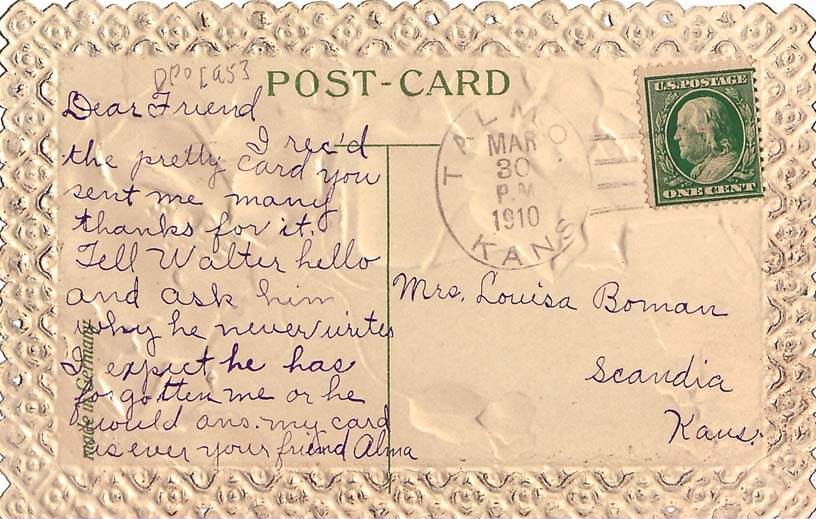 POST-CARD
Dear Friend
I rec'd
the pretty card you
sent me many
thanks for it.
Tell Walter hello
and ask him
why he never writes
I expect he has
forgotten me or he
would ans. my card
as ever your friend Alma
made in Germany
TALMO
MAR
30
P.M
1910
KANS
U.S. POSTAGE
ONE CENT
Mrs. Louisa Boman
Scandia
Kans.